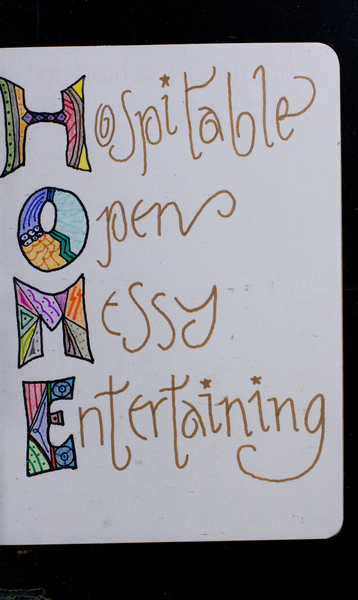 Hospitable
Open
Messy
Entertaining